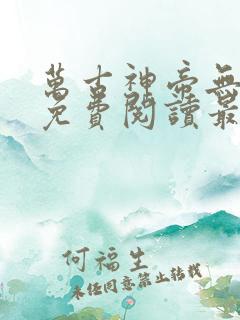 萬古神帝無
免費閱讀最
何福生
未经同意禁止转载